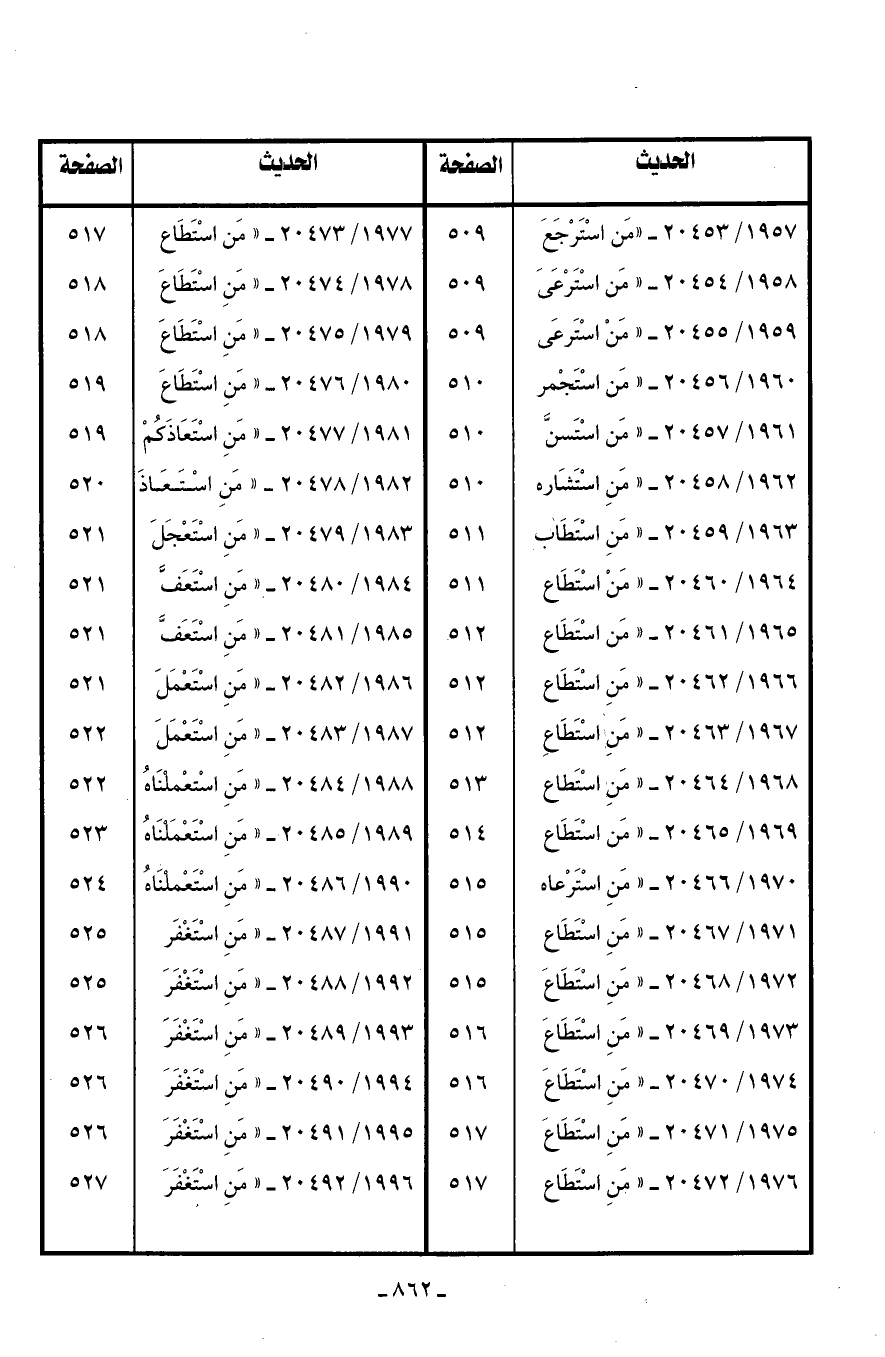 الحديث الصفحة الحديث الصفحة
١٩٥٧/ ٢٠٤٥٣ ـ «مَن اسْتَرْجَعَ ٥٠٩ ١٩٧٧/ ٢٠٤٧٣ ـ « مَنِ اسْتَطَاع ٥١٧
١٩٥٨/ ٢٠٤٥٤ ـ « مَن اسْتَرْعَىَ ٥٠٩ ١٩٧٨/ ٢٠٤٧٤ ـ « مَنِ اسْتَطَاعَ ٥١٨
١٩٥٩/ ٢٠٤٥٥ ـ « مَنْ اسْتَرعَى ٥٠٩ ١٩٧٩/ ٢٠٤٧٥ ـ « مَنِ اسْتَطَاعَ ٥١٨
١٩٦٠/ ٢٠٤٥٦ ـ « مَنِ اسْتَجْمر ٥١٠ ١٩٨٠/ ٢٠٤٧٦ ـ « مَنِ اسْتَطَاعَ ٥١٩
١٩٦١/ ٢٠٤٥٧ ـ « مَنِ اسْتَسنَّ ٥١٠ ١٩٨١/ ٢٠٤٧٧ ـ « مَنِ اسْتَعَاذَكُمْ ٥١٩
١٩٦٢/ ٢٠٤٥٨ ـ « مَنِ اسْتَشَاره ٥١٠ ١٩٨٢/ ٢٠٤٧٨ ـ « مَنِ اسْتَعَاذَ ٥٢٠
١٩٦٣/ ٢٠٤٥٩ ـ « مَنِ اسْتَطَاب ٥١١ ١٩٨٣/ ٢٠٤٧٩ ـ « مَنِ اسْتَعْجَلَ ٥٢١
١٩٦٤/ ٢٠٤٦٠ ـ « مَنْ اسْتَطَاع ٥١١ ١٩٨٤/ ٢٠٤٨٠ ـ « مَنِ اسْتَعَفَّ ٥٢١
١٩٦٥/ ٢٠٤٦١ ـ « مَنِ اسْتَطَاع ٥١٢ ١٩٨٥/ ٢٠٤٨١ ـ « مَنِ اسْتَعَفَّ ٥٢١
١٩٦٦/ ٢٠٤٦٢ ـ « مَنِ اسْتَطَاع ٥١٢ ١٩٨٦/ ٢٠٤٨٢ ـ « مَنِ اسْتَعْمَلَ ٥٢١
١٩٦٧/ ٢٠٤٦٣ ـ « مَنِ اسْتَطَاعِ ٥١٢ ١٩٨٧/ ٢٠٤٨٣ ـ « مَنِ اسْتَعْمَلَ ٥٢٢
١٩٦٨/ ٢٠٤٦٤ ـ « مَنِ اسْتَطاع ٥١٣ ١٩٨٨/ ٢٠٤٨٤ ـ « مَنِ اسْتَعْملْنَاهُ ٥٢٢
١٩٦٩/ ٢٠٤٦٥ ـ « مَنِ اسْتَطَاع ٥١٤ ١٩٨٩/ ٢٠٤٨٥ ـ « مَنِ اسْتَعْمَلْنَاهُ ٥٢٣
١٩٧٠/ ٢٠٤٦٦ ـ « مَنِ اسْتَرْعاه ٥١٥ ١٩٩٠/ ٢٠٤٨٦ ـ « مَنِ اسْتَعْملْنَاهُ ٥٢٤
١٩٧١/ ٢٠٤٦٧ ـ « مَنِ اسْتَطَاع ٥١٥ ١٩٩١/ ٢٠٤٨٧ ـ « مَنِ اسْتَغْفَر ٥٢٥
١٩٧٢/ ٢٠٤٦٨ ـ « مَنِ اسْتَطَاعَ ٥١٥ ١٩٩٢/ ٢٠٤٨٨ ـ « مَنِ اسْتَغْفَرَ ٥٢٥
١٩٧٣/ ٢٠٤٦٩ ـ « مَنِ اسْتَطَاعَ ٥١٦ ١٩٩٣/ ٢٠٤٨٩ ـ « مَنِ اسْتَغْفَرَ ٥٢٦
١٩٧٤/ ٢٠٤٧٠ ـ « مَنِ اسْتَطَاعَ ٥١٦ ١٩٩٤/ ٢٠٤٩٠ ـ « مَنِ اسْتَغْفَرَ ٥٢٦
١٩٧٥/ ٢٠٤٧١ ـ « مَنِ اسْتَطَاعَ ٥١٧ ١٩٩٥/ ٢٠٤٩١ ـ « مَنِ اسْتَغْفَرَ ٥٢٦
١٩٧٦/ ٢٠٤٧٢ ـ « مَنِ اسْتَطَاع ٥١٧ ١٩٩٦/ ٢٠٤٩٢ ـ « مَنِ اسْتَغْفَرَ ٥٢٧
ـ ٨٦٢ ـ